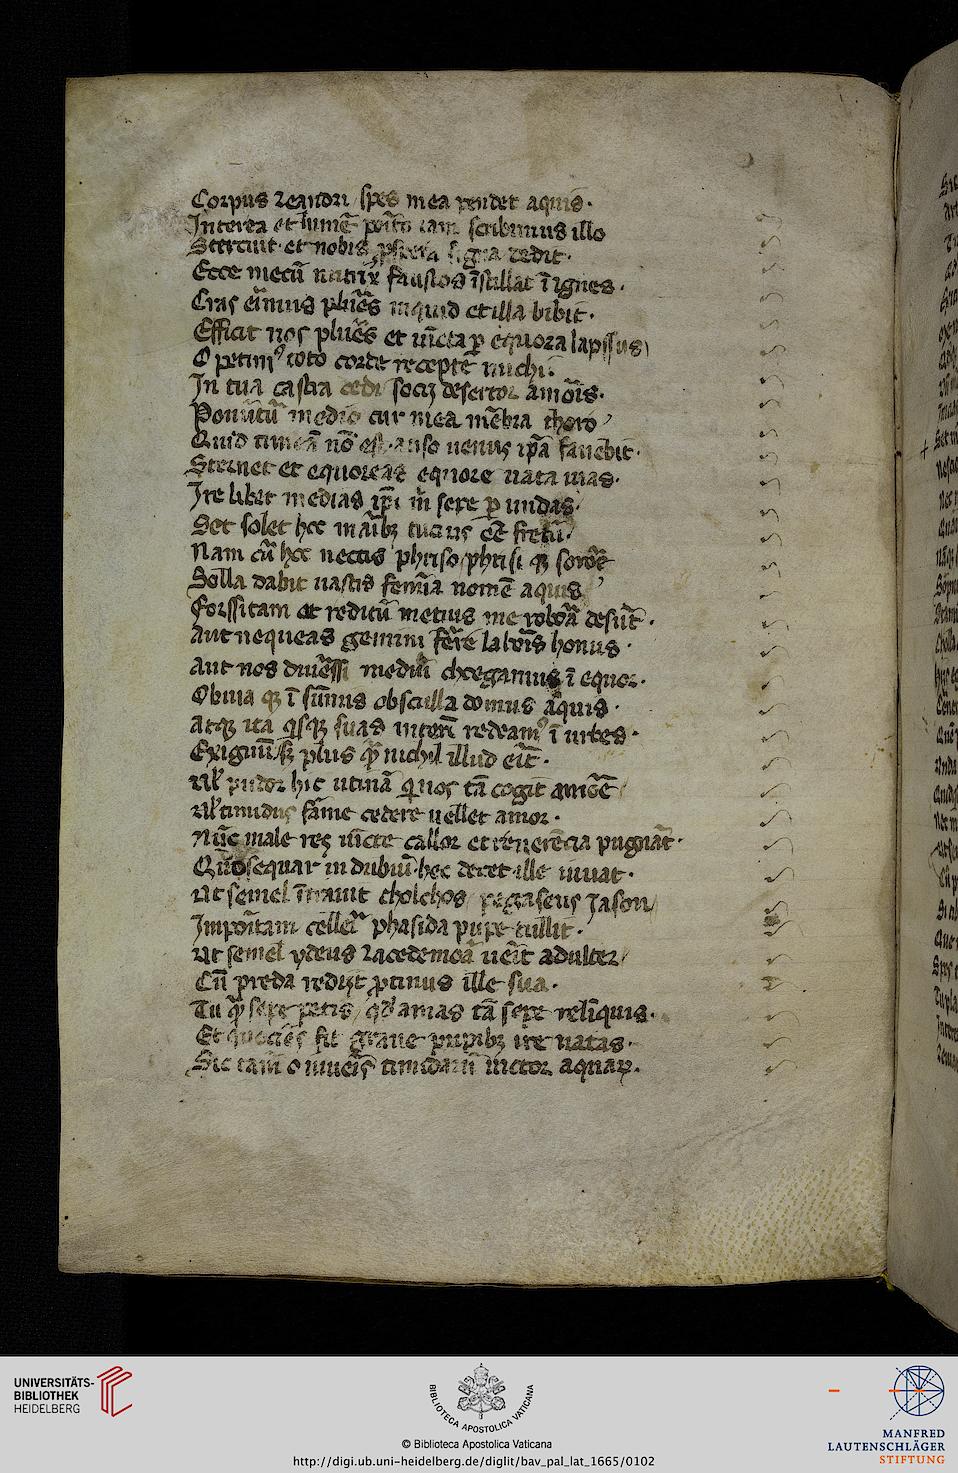 Corpus leandri spes mea pendet aquis.
Interea et lumē iam scribimus illo
Stertiut. et nobis signa dedit.
Ecce mecū nutrix faustos īstillat ī ignes.
Cras erimus plures inquid et illa bibit.
Efficit nos plures et iūcta ꝑ equora lapssus
O petim9 toto corde recepte michi.
In tua castra redi socii desertor amoris.
Ponūtur medio cur mea mēbra thoro
Quid timeā nō est. auso uenus ipā fauebit.
Sternet et equoreas equore nata uias.
Ire libet medias ipi m̄ sepe ꝑ undas.
Set solet hec maribꝫ tucius eē fretū.
Nam cū hec uectis phrixo phrixi qꝫ sorore
Solla dabit uastis femīa nomē aquis
Forssitam et reditū metuus ne robora desūt.
Aut nequeas gemini ferre laboris honus.
Aut nos diuerssi mediū coegamus ī equor.
Obuia qꝫ ī sūmis obscula domus aquis.
Atqꝫ ita qisqꝫ suas redeam9 ī urbes.
Exiguū sꝫ plus qm̄ nichil illud erit.
Ul pudor hic utinā qi nos tā cogit amare
Ul timidus fame cedere uellet amor.
Nūc male res iūcte callor et reuerēcia pugnāt.
Qd sequar in dubiū. hec decet ille iuuat.
Ut semel ītrauit cholchos pegaseus Jason
Impositam celleri phasida puppe tullit.
Ut semel ydeus lacedemoā uenit adulter
Cū preda redijt ꝓtinus ille sua.
Tu qm̄ sepe petis qd amas tā sepe relīquis.
Et quociens fit graue pupibꝫ ire natas.
Sic tam̄ o iuuenis timidarū uictor aquaꝝ.
UNIVERSITÄTS-
BIBLIOTHEK
HEIDELBERG
BIBLIOTECA APOSTOLICA VATICANA
© Biblioteca Apostolica Vaticana
http://digi.ub.uni-heidelberg.de/diglit/bav_pal_lat_1665/0102
MANFRED
LAUTENSCHLÄGER
STIFTUNG